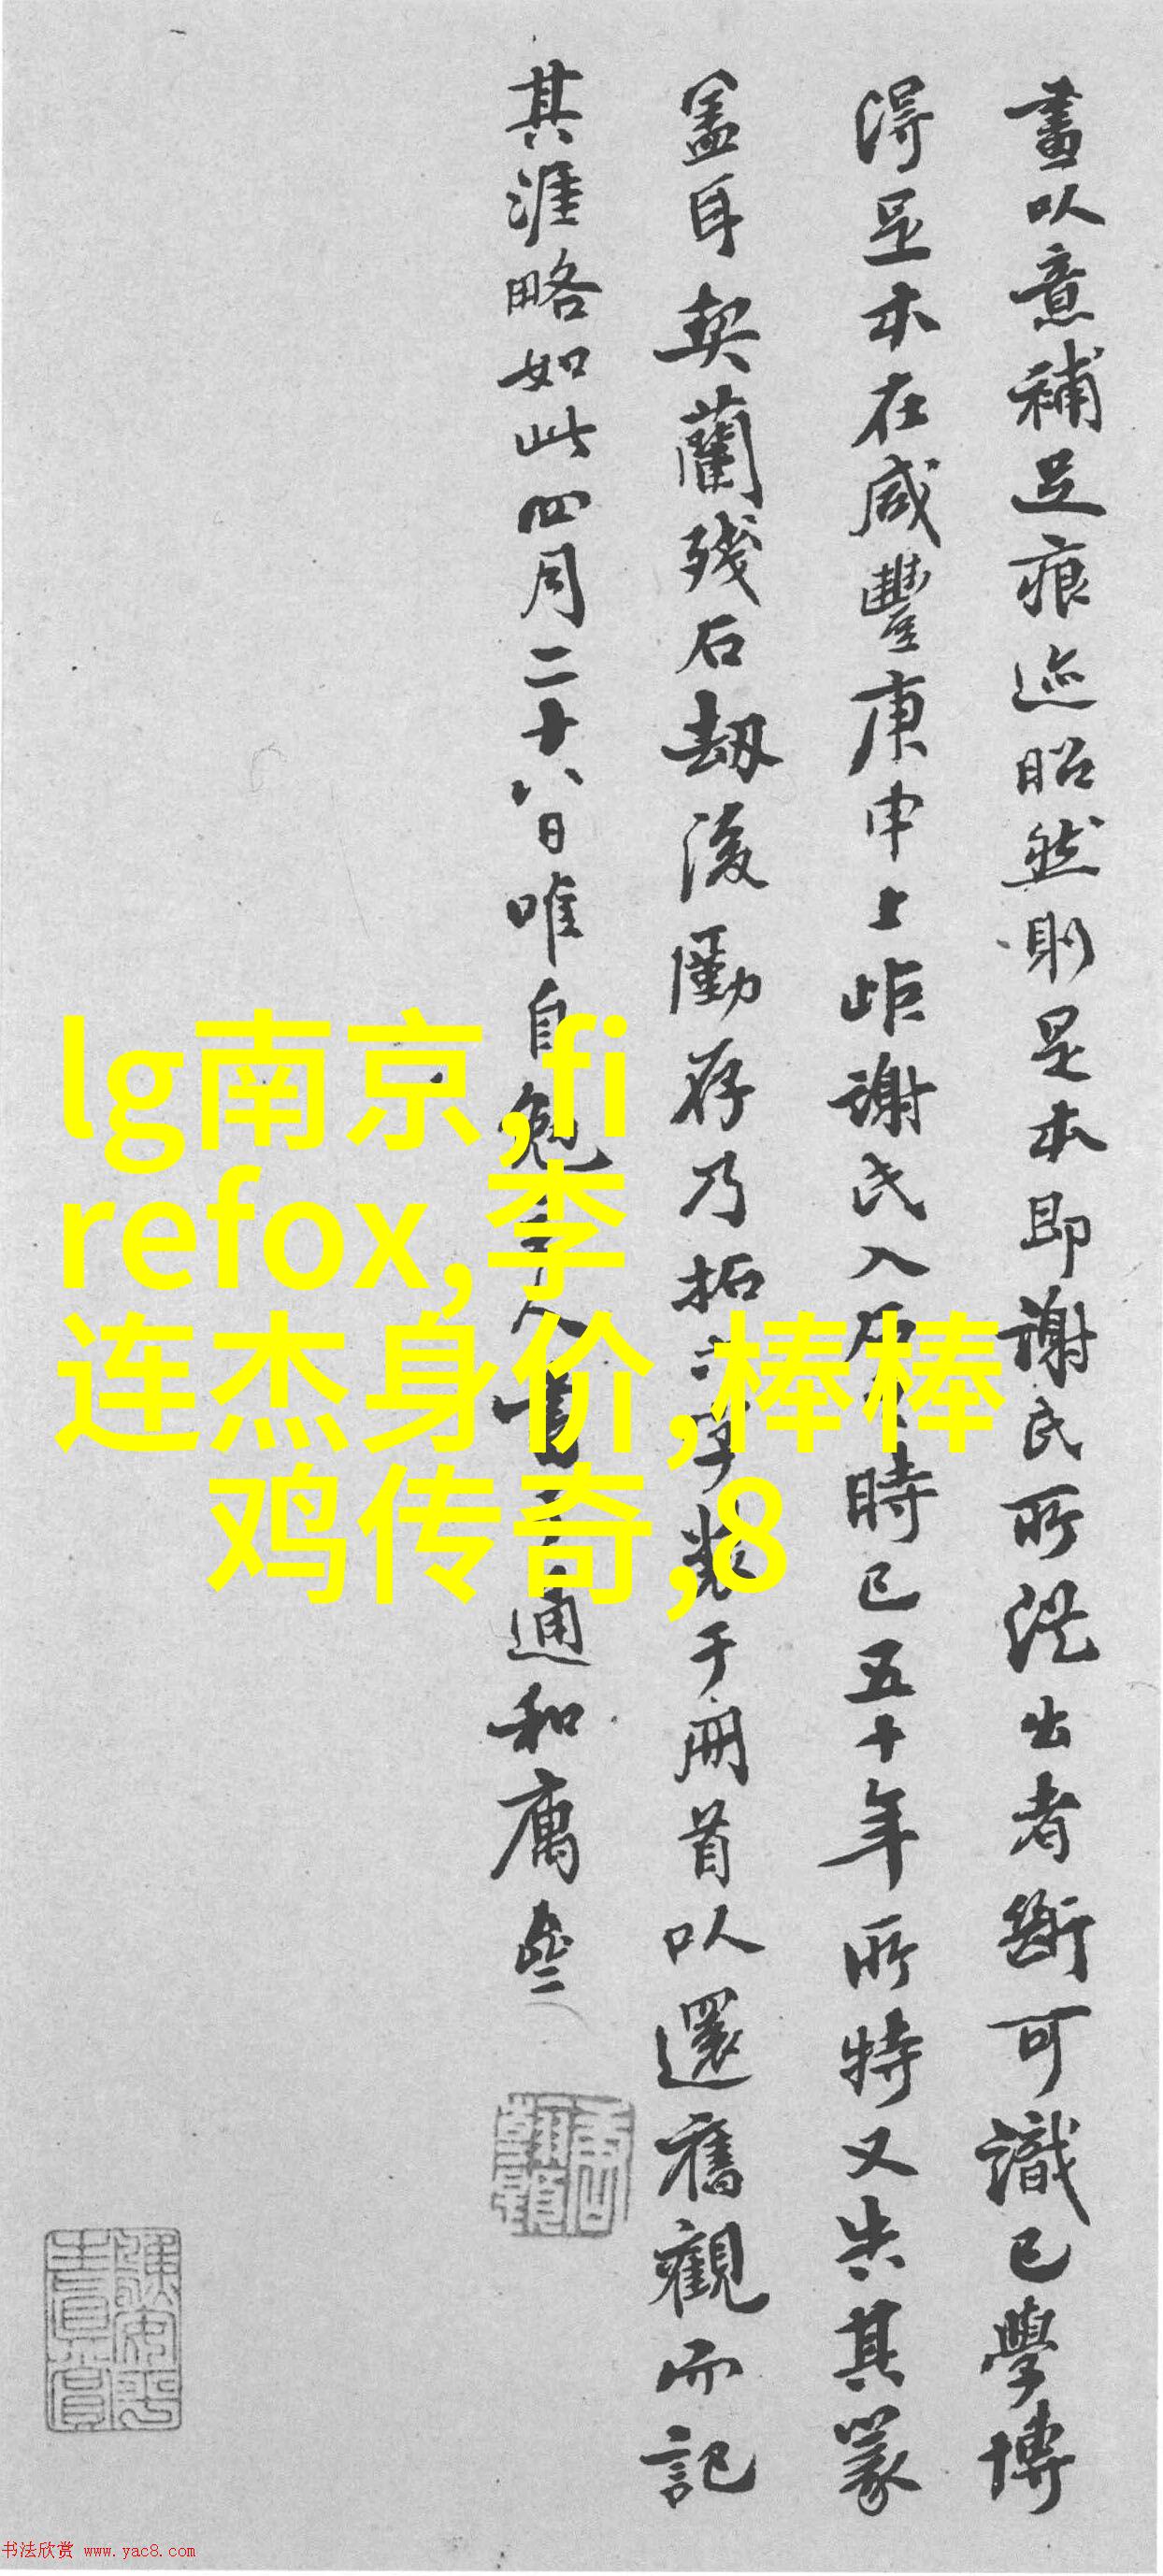 畫以意補足痕迹昭然則是本即謝氏所從出者斷可識已學博
得足本在咸豐庚申上距謝氏入石時已五十年所特又失其篆
蓋耳契蘭殘石劫後勵存乃拓二字裝于冊首以還舊觀而記
其涯略如此四月二十八日唯自勉
通和唐
lg南京,fi
refox,李
连杰身价,棒棒
鸡传奇,8
书法欣赏 www.yac8.com